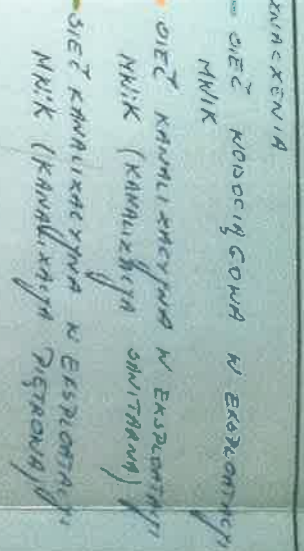 XNACXENIA
- SIEĆ WODOCIĄGOWA W EKSPLOATACYI
MWIK
- SIEĆ KANALIXACYJNA W EKSPLOATACYI
MWIK (KANALIXACYJA SANITARNA)
- SIEĆ KANALIXACYJNA W EKSPLOATACYI
MWIK (KANALIXACYJA PIĘTROWA)